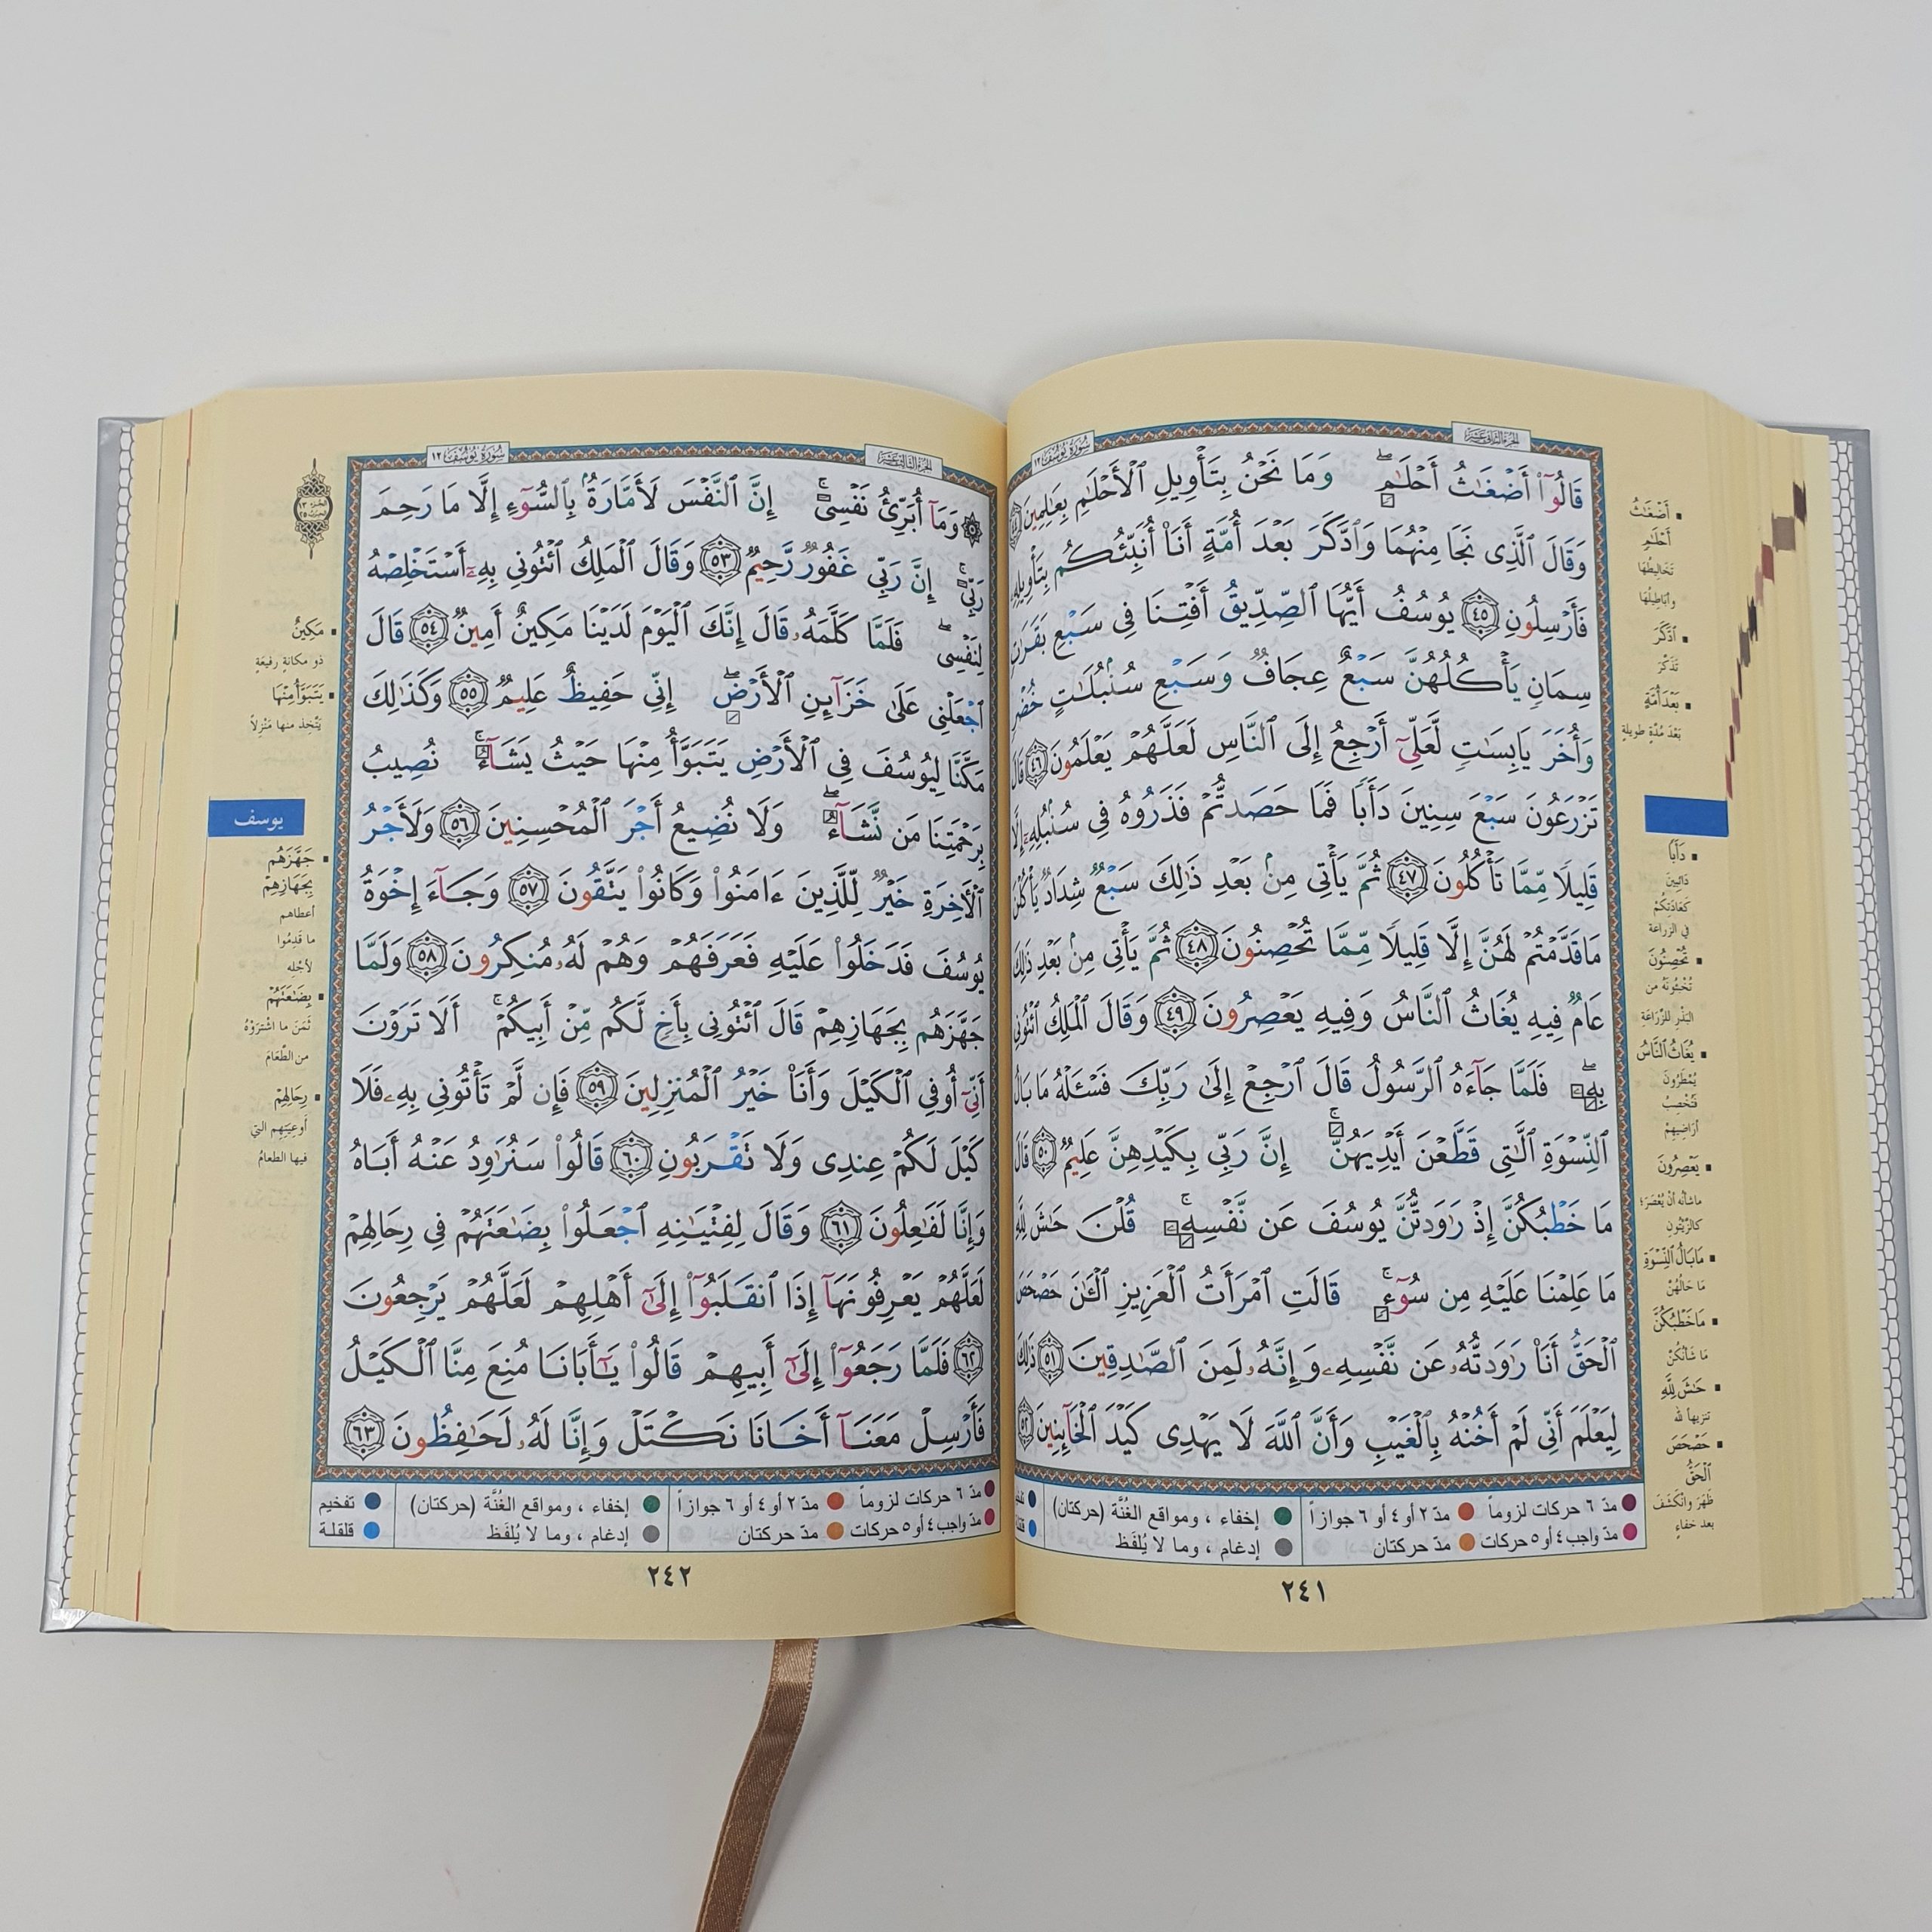 سُورَةُ يُوسُفَ ١٢
الجزء الثاني عشر
قَالُوٓاْ أَضۡغَٰثُ أَحۡلَٰمٖۖ وَمَا نَحۡنُ بِتَأۡوِيلِ ٱلۡأَحۡلَٰمِ بِعَٰلِمِينَ ٤٤
وَقَالَ ٱلَّذِي نَجَا مِنۡهُمَا وَٱدَّكَرَ بَعۡدَ أُمَّةٍ أَنَا۠ أُنَبِّئُكُم بِتَأۡوِيلِهِۦ
فَأَرۡسِلُونِ ٤٥ يُوسُفُ أَيُّهَا ٱلصِّدِّيقُ أَفۡتِنَا فِي سَبۡعِ بَقَرَٰتٖ
سِمَانٖ يَأۡكُلُهُنَّ سَبۡعٌ عِجَافٞ وَسَبۡعِ سُنۢبُلَٰتٍ خُضۡرٖ
وَأُخَرَ يَابِسَٰتٖ لَّعَلِّيٓ أَرۡجِعُ إِلَى ٱلنَّاسِ لَعَلَّهُمۡ يَعۡلَمُونَ ٤٦ قَالَ
تَزۡرَعُونَ سَبۡعَ سِنِينَ دَأَبٗا فَمَا حَصَدتُّمۡ فَذَرُوهُ فِي سُنۢبُلِهِۦٓ إِلَّا
قَلِيلٗا مِّمَّا تَأۡكُلُونَ ٤٧ ثُمَّ يَأۡتِي مِنۢ بَعۡدِ ذَٰلِكَ سَبۡعٞ شِدَادٞ يَأۡكُلۡنَ
مَا قَدَّمۡتُمۡ لَهُنَّ إِلَّا قَلِيلٗا مِّمَّا تُحۡصِنُونَ ٤٨ ثُمَّ يَأۡتِي مِنۢ بَعۡدِ ذَٰلِكَ
عَامٞ فِيهِ يُغَاثُ ٱلنَّاسُ وَفِيهِ يَعۡصِرُونَ ٤٩ وَقَالَ ٱلۡمَلِكُ ٱئۡتُونِي
بِهِۦۖ فَلَمَّا جَآءَهُ ٱلرَّسُولُ قَالَ ٱرۡجِعۡ إِلَىٰ رَبِّكَ فَسۡـَٔلۡهُ مَا بَالُ
ٱلنِّسۡوَةِ ٱلَّٰتِي قَطَّعۡنَ أَيۡدِيَهُنَّۚ إِنَّ رَبِّي بِكَيۡدِهِنَّ عَلِيمٞ ٥٠ قَالَ
مَا خَطۡبُكُنَّ إِذۡ رَٰوَدتُّنَّ يُوسُفَ عَن نَّفۡسِهِۦۚ قُلۡنَ حَٰشَ لِلَّهِ
مَا عَلِمۡنَا عَلَيۡهِ مِن سُوٓءٖۚ قَالَتِ ٱمۡرَأَتُ ٱلۡعَزِيزِ ٱلۡـَٰٔنَ حَصۡحَصَ
ٱلۡحَقُّ أَنَا۠ رَٰوَدتُّهُۥ عَن نَّفۡسِهِۦ وَإِنَّهُۥ لَمِنَ ٱلصَّٰدِقِينَ ٥١ ذَٰلِكَ
لِيَعۡلَمَ أَنِّي لَمۡ أَخُنۡهُ بِٱلۡغَيۡبِ وَأَنَّ ٱللَّهَ لَا يَهۡدِي كَيۡدَ ٱلۡخَآئِنِينَ ٥٢
أَضْغَٰثُ
أَحْلَٰمٍ
تَخَالِيطُها
وأباطِيلُها
ٱدَّكَرَ
تَذَكَّرَ
بَعْدَ أُمَّةٍ
بَعْدَ مُدَّةٍ طويلةٍ
دَأَبًا
دَائِبِينَ
كَعَادَتِكُمْ
في الزراعة
تُحْصِنُونَ
تُخْبِئونَهُ من
البَذْرِ للزِّرَاعَةِ
يُغَاثُ ٱلنَّاسُ
يُمْطَرُونَ
فَتُخْصِبُ
أرَاضِيهِمْ
يَعْصِرُونَ
ماشأنُه أنْ يُعْصَرَ؛
كالزَّيْتُونِ
مَا بَالُ ٱلنِّسْوَةِ
مَا حَالُهُنَّ
مَا خَطْبُكُنَّ
مَا شَأنُكُنَّ
حَٰشَ لِلَّهِ
تنزيهاً لله
حَصْحَصَ
ٱلْحَقُّ
ظَهَرَ وانْكَشَفَ
بعد خفاءٍ
مدّ ٦ حركات لزوماً مدّ ٢ أو ٤ أو ٦ جوازاً إخفاء ، ومواقع الغُنَّة (حركتان)
مدّ واجب ٤ أو ٥ حركات مدّ حركتان إدغام ، وما لا يُلفَظ
٢٤١
الجزء الثالث عشر
سُورَةُ يُوسُفَ ١٢
وَمَآ أُبَرِّئُ نَفۡسِيٓۚ إِنَّ ٱلنَّفۡسَ لَأَمَّارَةُۢ بِٱلسُّوٓءِ إِلَّا مَا رَحِمَ
رَبِّيٓۚ إِنَّ رَبِّي غَفُورٞ رَّحِيمٞ ٥٣ وَقَالَ ٱلۡمَلِكُ ٱئۡتُونِي بِهِۦٓ أَسۡتَخۡلِصۡهُ
لِنَفۡسِيۖ فَلَمَّا كَلَّمَهُۥ قَالَ إِنَّكَ ٱلۡيَوۡمَ لَدَيۡنَا مَكِينٌ أَمِينٞ ٥٤ قَالَ
ٱجۡعَلۡنِي عَلَىٰ خَزَآئِنِ ٱلۡأَرۡضِۖ إِنِّي حَفِيظٌ عَلِيمٞ ٥٥ وَكَذَٰلِكَ
مَكَّنَّا لِيُوسُفَ فِي ٱلۡأَرۡضِ يَتَبَوَّأُ مِنۡهَا حَيۡثُ يَشَآءُۚ نُصِيبُ
بِرَحۡمَتِنَا مَن نَّشَآءُۖ وَلَا نُضِيعُ أَجۡرَ ٱلۡمُحۡسِنِينَ ٥٦ وَلَأَجۡرُ
ٱلۡأٓخِرَةِ خَيۡرٞ لِّلَّذِينَ ءَامَنُواْ وَكَانُواْ يَتَّقُونَ ٥٧ وَجَآءَ إِخۡوَةُ
يُوسُفَ فَدَخَلُواْ عَلَيۡهِ فَعَرَفَهُمۡ وَهُمۡ لَهُۥ مُنكِرُونَ ٥٨ وَلَمَّا
جَهَّزَهُم بِجَهَازِهِمۡ قَالَ ٱئۡتُونِي بِأَخٖ لَّكُم مِّنۡ أَبِيكُمۡۚ أَلَا تَرَوۡنَ
أَنِّيٓ أُوفِي ٱلۡكَيۡلَ وَأَنَا۠ خَيۡرُ ٱلۡمُنزِلِينَ ٥٩ فَإِن لَّمۡ تَأۡتُونِي بِهِۦ فَلَا
كَيۡلَ لَكُمۡ عِندِي وَلَا تَقۡرَبُونِ ٦٠ قَالُواْ سَنُرَٰوِدُ عَنۡهُ أَبَاهُ
وَإِنَّا لَفَٰعِلُونَ ٦١ وَقَالَ لِفِتۡيَٰنِهِ ٱجۡعَلُواْ بِضَٰعَتَهُمۡ فِي رِحَالِهِمۡ
لَعَلَّهُمۡ يَعۡرِفُونَهَآ إِذَا ٱنقَلَبُوٓاْ إِلَىٰٓ أَهۡلِهِمۡ لَعَلَّهُمۡ يَرۡجِعُونَ
٦٢ فَلَمَّا رَجَعُوٓاْ إِلَىٰٓ أَبِيهِمۡ قَالُواْ يَٰٓأَبَانَا مُنِعَ مِنَّا ٱلۡكَيۡلُ
فَأَرۡسِلۡ مَعَنَآ أَخَانَا نَكۡتَلۡ وَإِنَّا لَهُۥ لَحَٰفِظُونَ ٦٣
الجزء ١٣
الحزب ٢٥
مَكِينٌ
ذو مكانةٍ رفيعَةٍ
يَتَبَوَّأُ مِنْهَا
يَتَّخِذ منها مَنْزِلاً
يوسف
جَهَّزَهُم
بِجَهَازِهِمْ
أعطاهم
ما قَدِمُوا
لأجْله
بِضَٰعَتَهُمْ
ثَمَنَ ما اشْتَرَوْهُ
من الطَّعامِ
رِحَالِهِمْ
أوعِيَتِهِم التي
فيها الطعامُ
مدّ ٦ حركات لزوماً مدّ ٢ أو ٤ أو ٦ جوازاً إخفاء ، ومواقع الغُنَّة (حركتان) تفخيم
مدّ واجب ٤ أو ٥ حركات مدّ حركتان إدغام ، وما لا يُلفَظ قلقلة
٢٤٢